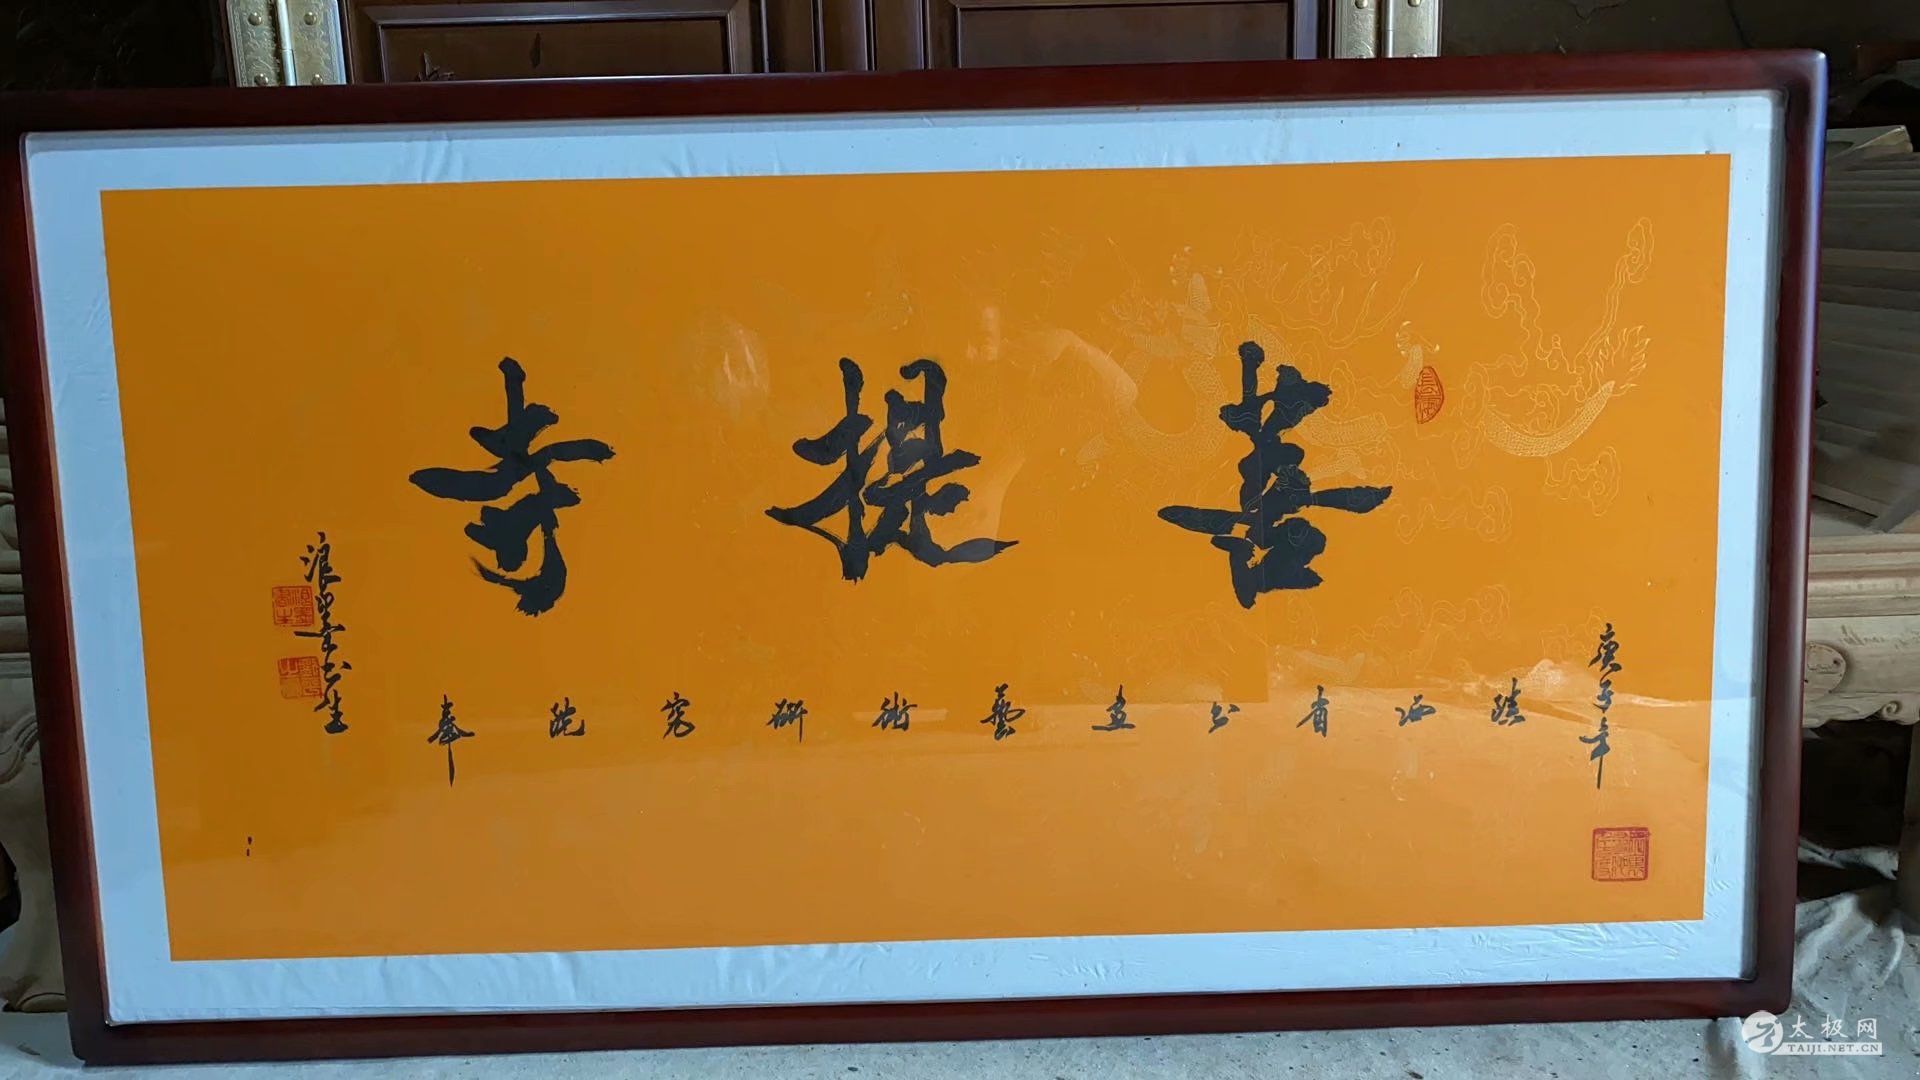 菩提寺
庚子年
陕西省书畫藝術研究院奉
浪墨书生
太极网
TAIJI.NET.CN